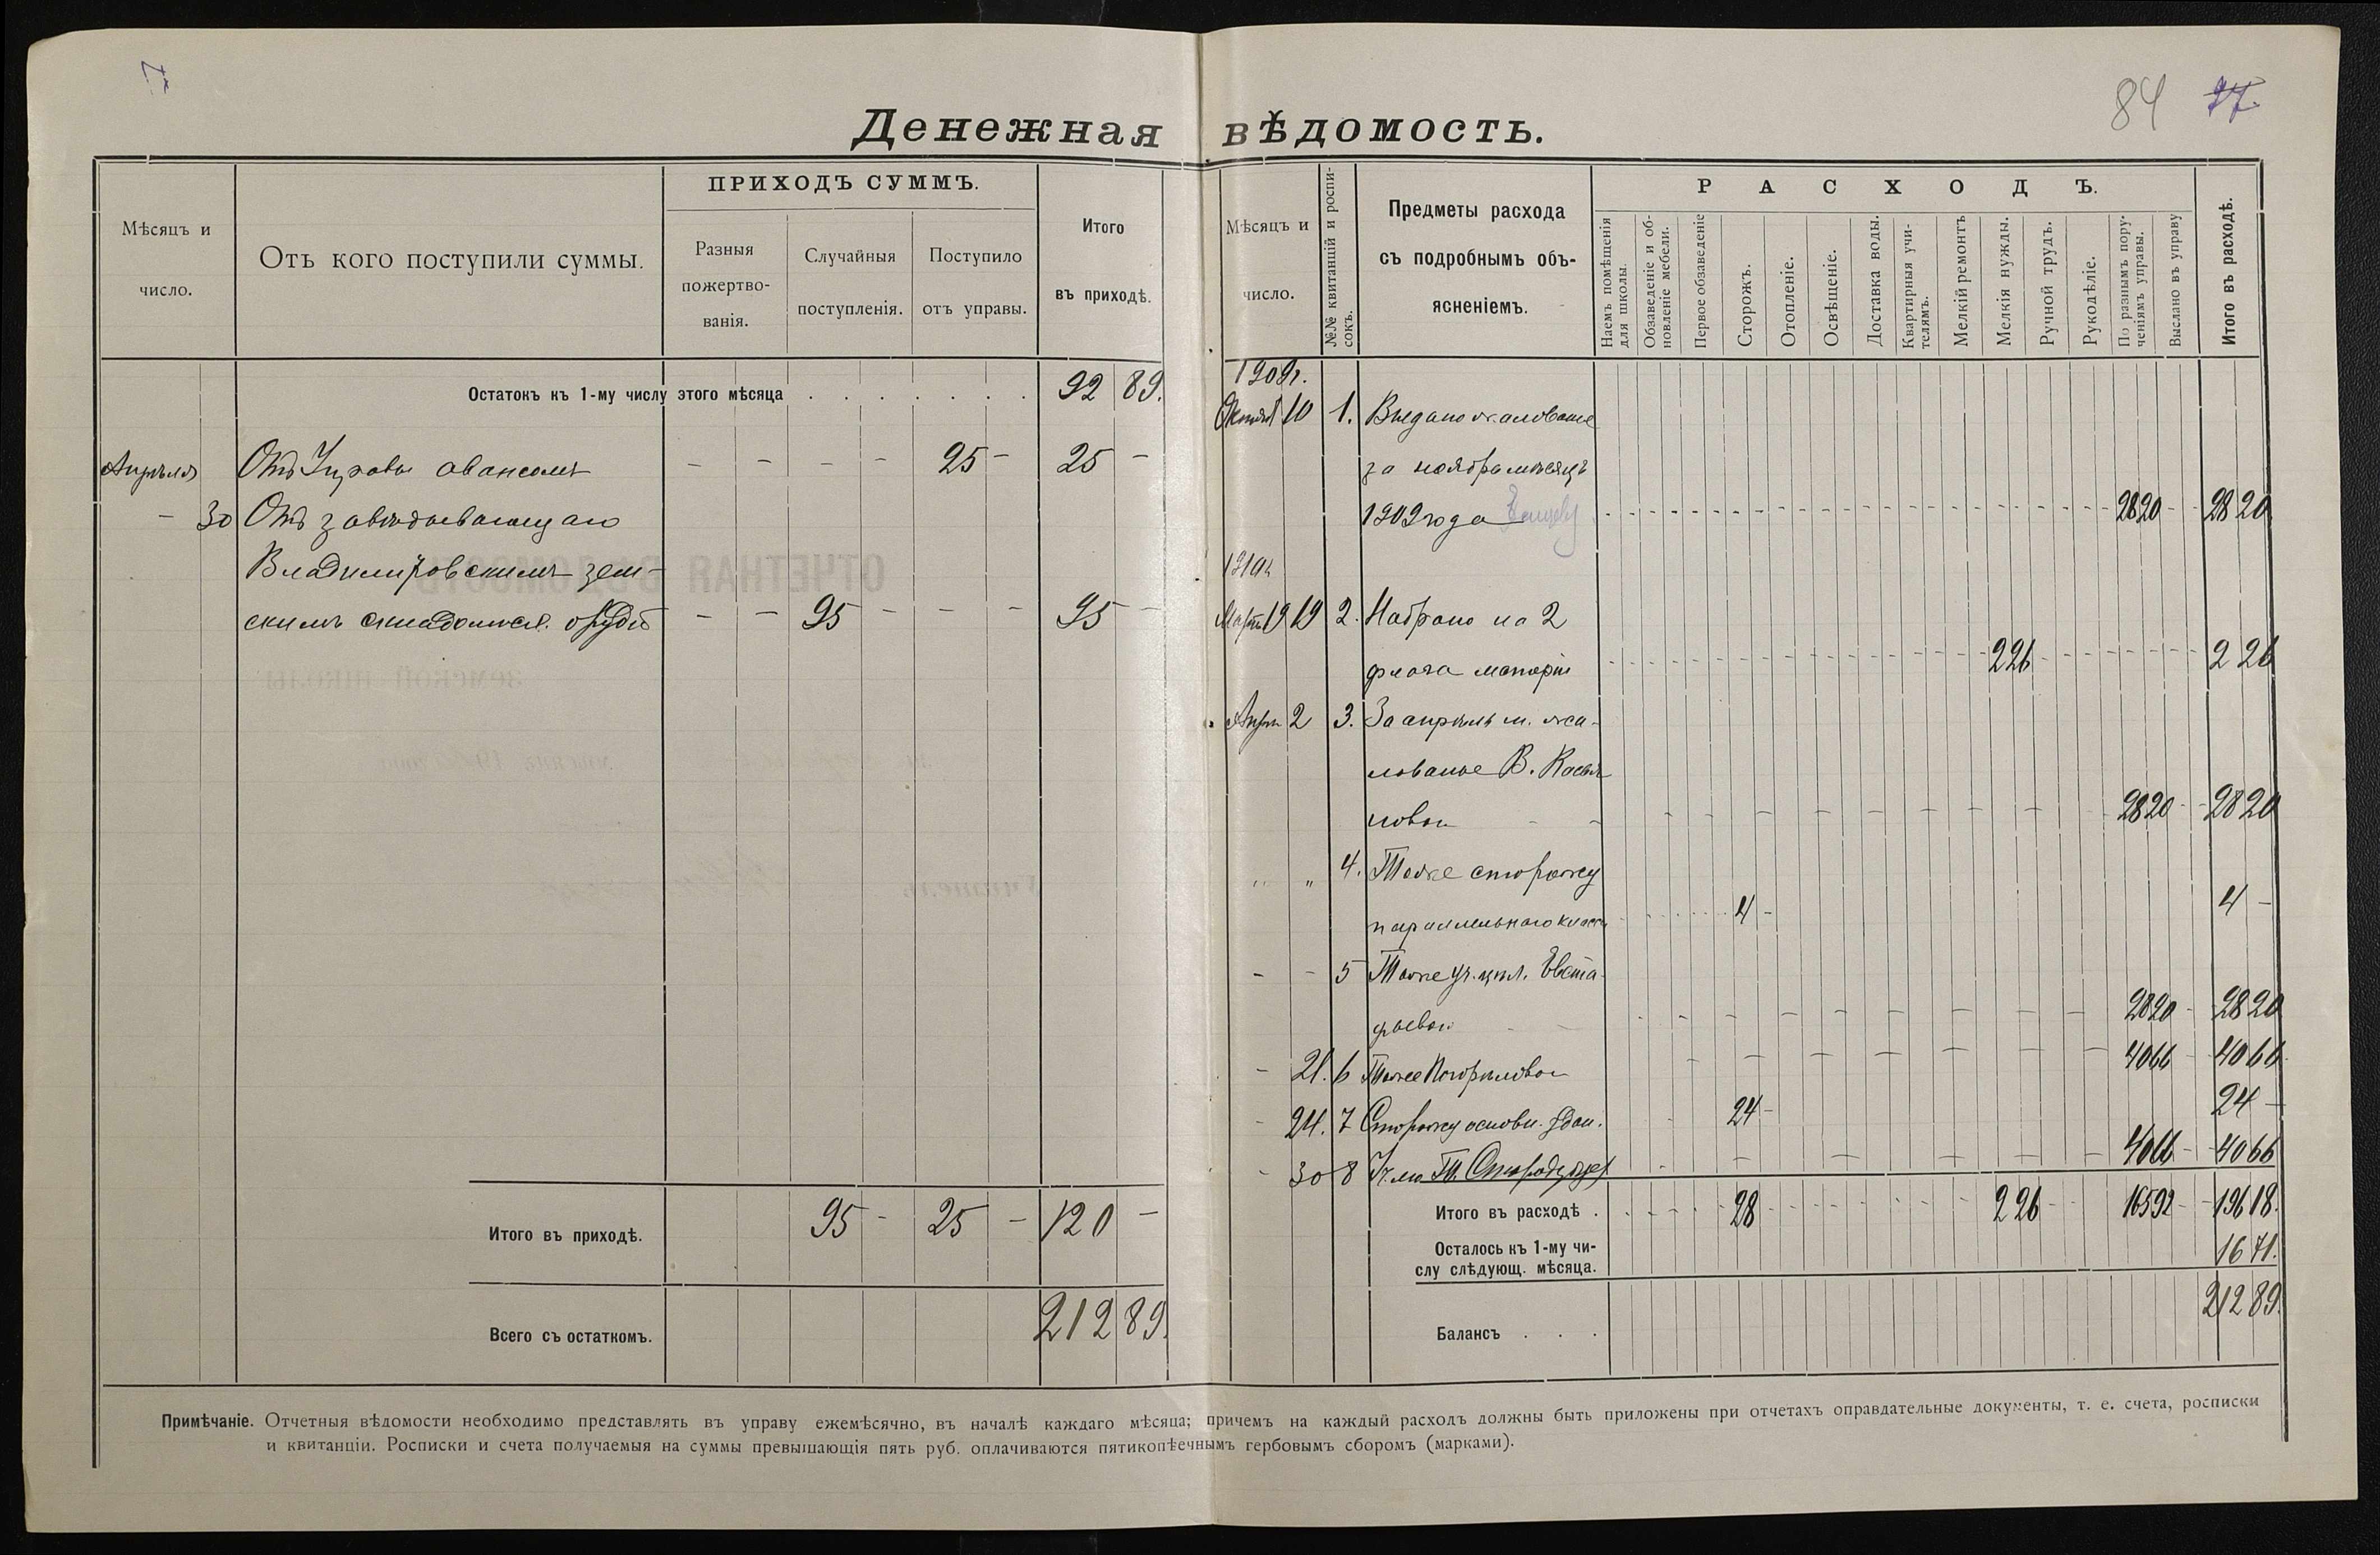 84 27.
Денежная вѣдомость.
Мѣсяцъ и число.
Отъ кого поступили суммы.
ПРИХОДЪ СУММЪ.
Разныя пожертво-
ванія.
Случайныя поступленія.
Поступило отъ управы.
Итого въ приходѣ.
Остатокъ къ 1-му числу этого мѣсяца . . . . . . . 92 89.
Апрѣля Отъ Управы авансомъ — — — — 25 — 25 —
— 30 Отъ завѣдывающаго
Владимировскимъ зем-
скимъ складомъ — — 95 — — — 95 —
Итого въ приходѣ. 95 — 25 — 120 —
Всего съ остаткомъ. 212 89.
Мѣсяцъ и число.
№№ квитанцій и роспи-
сокъ.
Предметы расхода
съ подробнымъ объ-
ясненіемъ.
РАСХОДЪ.
Наемъ помѣщенія для школы.
Обзаведеніе и об-
новленіе мебели.
Первое обзаведеніе
Сторожъ.
Отопленіе.
Освѣщеніе.
Доставка воды.
Квартирныя учи-
телямъ.
Мелкій ремонтъ
Мелкія нужды.
Ручной трудъ.
Рукодѣліе.
По разнымъ пору-
ченіямъ управы.
Выслано въ управу
Итого въ расходѣ.
1909г.
10 1. Выдано жалованье
за ноябрь мѣсяцъ
1909 года 28 20 28 20
1910г.
Мартъ 19 19 2. Набрано на 2
флага матеріи 2 26 2 26
Апр. 2 3. За апрѣль м. жа-
лованье В. Касья-
новой 28 20 28 20
„ „ 4. Тоже сторожу
параллельнаго класса 4 — 4 —
— — 5 Тоже уч. шк. Евста-
фьевой 28 20 28 20
— 21. 6 Тоже Погорѣловой 40 66 40 66
— 24. 7 Сторожу основн. здан. 24 — 24 —
— 30 8 40 66 40 66
Итого въ расходѣ . 28 2 26 165 92 196 18.
Осталось къ 1-му чи-
слу слѣдующ. мѣсяца. 16 71.
Балансъ . . . 212 89.
Примѣчаніе. Отчетныя вѣдомости необходимо представлять въ управу ежемѣсячно, въ началѣ каждаго мѣсяца; причемъ на каждый расходъ должны быть приложены при отчетахъ оправдательные документы, т. е. счета, росписки
и квитанціи. Росписки и счета получаемыя на суммы превышающія пять руб. оплачиваются пятикопѣечнымъ гербовымъ сборомъ (марками).